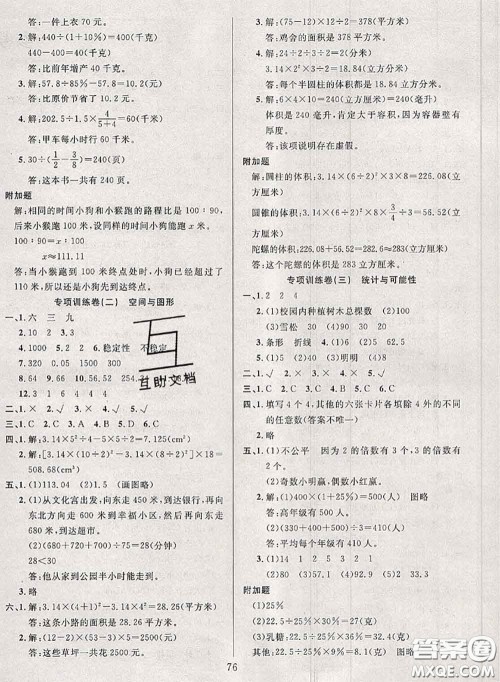 答:一件上衣 70 元。
2.解:440÷(1+10%)=400(千克)
440-400=40(千克)
答:比前年增产 40 千克。
3.解:57.8÷85%-57.8=10.2(元)
答:比原价节省了 10.2 元。
4.解:202.5÷1.5×4/(5+4)=60(千米)
答:甲车每小时行 60 千米。
5.30÷(1/2-3/8)=240(页)
答:这本书一共有 240 页。
附加题
解:相同的时间小狗和小猴跑的路程比是 100:90,
后来小猴跑 100 米。设同样的时间小狗能跑 x 米。
100:90=x:100
x≈111.11
答:当小猴跑 100 米终点处时,小狗已经跑过了
110 米,所以小狗先到达终点。
专项训练卷(二) 空间与图形
一、1.六 三 九 2.10 2 3.3
7.320 0.05 1500 4.6 稳定性 不稳定
8.54 9.84 10.56 56.52 11.
12.3 1 4 6 5 8
二、1.× 2.√ 3.× 4.× 5.√
三、1.C 2.C 3.A 4.C 5.A
四、1.解:3.14×5²÷4-5×5÷2=7.125(cm²)
2.解:3.14×(10÷2)²×4+3.14×(8÷2)²×4=
508.68(cm²)
五、1.(1)15 (2)10 (画图略)
2.(1)从文化宫出发,向东走 450 米,到达银行,再
向东南方向走 650 米到幸福小区,然后向东走
680 米,到达超市。
(2)(680+720+700)÷75=28(分)
28分<半小时
答:他从家到公园半小时能走到。
六、1.解:3.14×(8-2)²÷4=28.26(平方米)
答:这条小路的面积是 28.26 平方米。
2.解:(12-2)×(53-3)×5=2500(元)
答:这些草坪一共花 2500 元。
3.解:(75-12)×12÷2=378(平方米)
答:鸡舍的面积是 378 平方米。
4.3.14×2²×3÷2=18.84(立方厘米)
答:每个半圆柱的体积是 18.84 立方厘米。
5.解:6×4×10=240(立方厘米)=240(毫升)
体积是 240 毫升,肯定大于容积,因为容器壁有
厚度。
答:该项说明存在虚假。
附加题
解:圆柱的体积:3.14×(6÷2)²×8=226.08(立
方厘米)
圆锥的体积:3.14×(6÷2)²×8×3/4÷3=56.52
(立方厘米)
陀螺的体积:226.08+56.52≈283(立方厘米)
答:这个陀螺的体积是 283 立方厘米。
专项训练卷(三) 统计与可能性
一、1.2 2 4
2.(1)校园内种植树木总棵数 (2)
(3)雪松 30 (4)20
3.条形 折线 4.(1)
5.(1)34 (2)35 (3)明明 (4)明明
二、1.√ 2.× 3.× 4.√
三、1.A 2.B 3.C 4.A 5.B
四、1.填写 4 个 4,其他的六张卡片各填除 4 外的不同
的任意数(答案不唯一)
2.略
五、1.(1)不公平 因为 2 的倍数有 3 个,3 的倍数有
2 个。
(2)奇数小明赢,偶数小红赢。
2.(1)400÷(1-20%)=500(人) 图略
答:高年级有 500 人。
(2)(300+400+500)÷3=400(人)
答:平均每个年级有 400 人。
3.(1)14 1 2 5 3 2 1
(2)28 130 (3)略
附加题
(1)25%
(2)乳糖:22.5÷30%×36%=27(克)
其他:22.5÷30%×25%=18.75(克) 图略
76
互
互助文档
答案圈
MXQE.COM